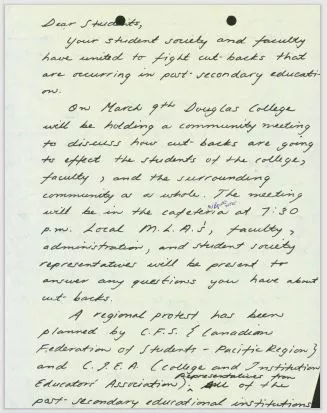 Dear Students,
Your student society and faculty
have united to fight cut-backs that
are occurring in post-secondary educati-
on.
On March 9th Douglas College
will be holding a community meeting
to discuss how cut-backs are going
to effect the students of the college,
faculty, and the surrounding
community as a whole. The meeting
will be in the cafeteria at 7:30
p.m. Local M.L.A.'s, faculty,
administration, and student society
representatives will be present to
answer any questions you have about
cut-backs.
A regional protest has been
planned by C.F.S. {Canadian
Federation of Students - Pacific Region}
and C.I.E.A. (college and Institution
Educators' Association). Representatives from
all of the
post-secondary educational institutions